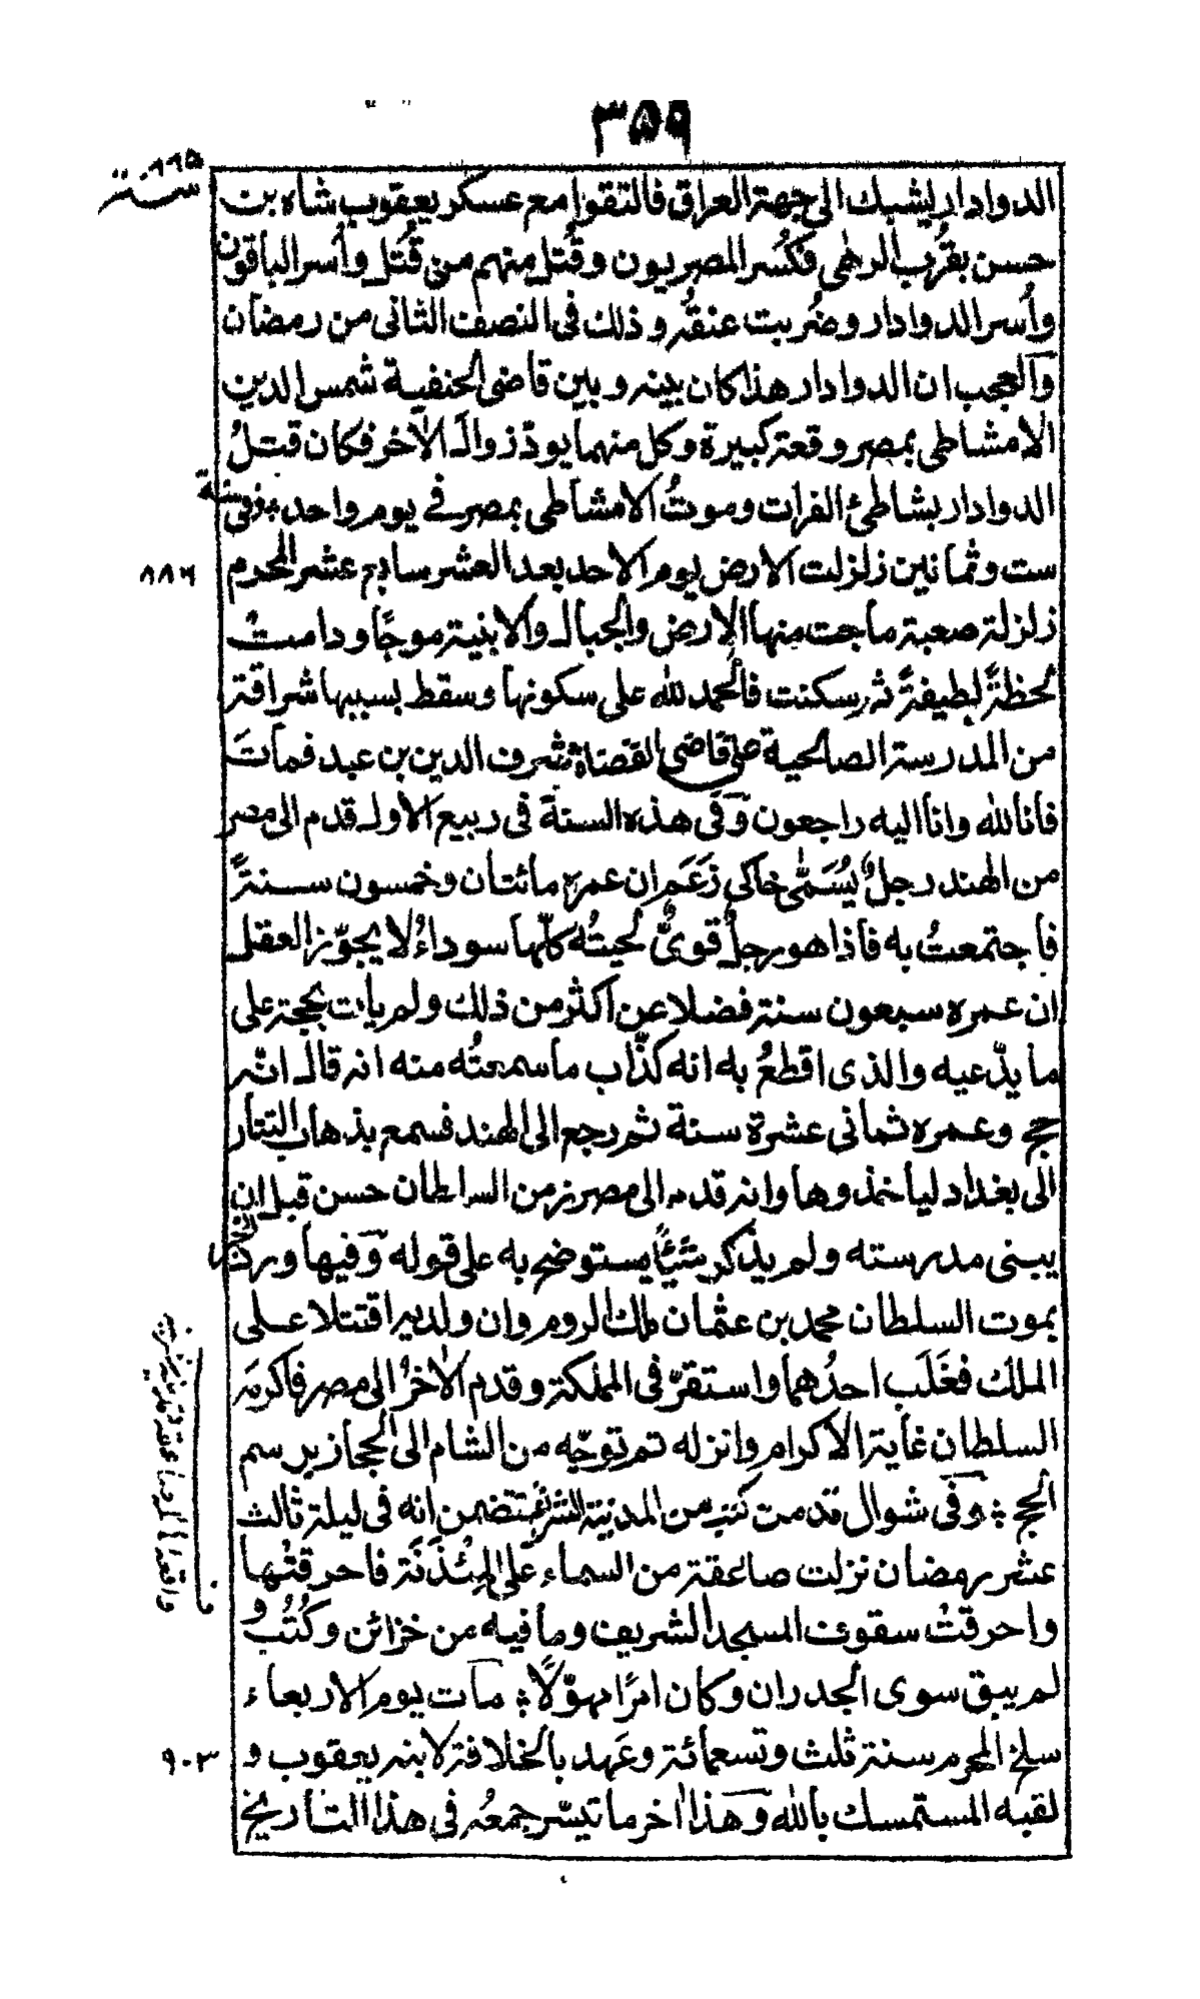 ٣٥٩
سنة ٨٨٥
الدوادار يشبك الى جهة العراق فالتقوا مع عسكر يعقوب شاه بن
حسن بقرب الرهى فكُسر المصريون وقُتل منهم من قُتل وأُسر الباقون
وأُسر الدوادار وضُربت عنقُه وذلك فى النصف الثانى من رمضان
والعجب ان الدوادار هذا كان بينه وبين قاضى الحنفية شمس الدين
الامشاطى بمصر وقعة كبيرة وكل منهما يودّ زوالَ الآخر فكان قتلُ
الدوادار بشاطئ الفرات وموتُ الامشاطى بمصر فے يوم واحد وفى سنة
ست وثمانين زلزلت الارض يوم الاحد بعد العشر سابع عشر المحرم
٨٨٦
زلزلة صعبة ماجت منها الارض والجبال والابنية موجًا ودامتْ
لحظةً لطيفةً ثم سكنت فالحمد لله على سكونها وسقط بسببها شرافة
من المدرسة الصالحية على قاضى القضاة شرف الدين بن عبد فماتَ
فانا لله وانا اليه راجعون وفى هذه السنة فى ربيع الاول قدم الى مصر
من الهند رجلٌ يُسَمّٰى خاكى زَعَم ان عمره مائتان وخمسون سنةً
فاجتمعتُ به فاذا هو رجلٌ قوىٌّ لحيتُه كلّها سوداءُ لا يجوّز العقل
ان عمره سبعون سنة فضلا عن اكثر من ذلك ولم يأت بحجة على
ما يدّعيه والذى اقطعُ به انه كذّاب ما سمعتُه منه انه قال انّه
حج وعمره ثمانى عشرة سنة ثم رجع الى الهند فسمع بذهاب التتار
الى بغداد ليأخذوها وانه قدم الى مصر زمن السلطان حسن قبل ان
يبنى مدرسته ولم يذكر شيئًا يستوضح به على قوله وفيها ورد الخبر
بموت السلطان محمد بن عثمان ملك الروم وان ولديه اقتتلا على
الملك فغَلَب احدُهما واستقرّ فى المملكة وقدم الآخرُ الى مصر فاكرمه
السلطان غاية الاكرام وانزله ثم توجّه من الشام الى الحجاز برسم
الحج وفى شوال قدمت كتب من المدينة الشريفة تتضمن انه فى ليلة ثالث
عشر رمضان نزلت صاعقة من السماء على المِئْذَنَة فاحرقتْها
واحرقتْ سقوف المسجد الشريف وما فيه من خزائن وكُتُب و
لم يبق سوى الجدران وكان امرًا مهولًا مات يوم الاربعاء
سلخ المحرم سنة ثلث وتسعمائة وعَهد بالخلافة لابنه يعقوب و
٩٠٣
لقبه المستمسك بالله وهذا اٰخر ما تيسّر جمعُه فى هذا التأريخ